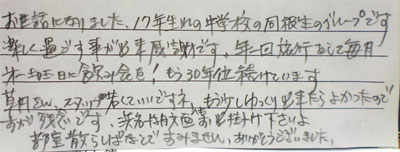 お世話になりました、17年生れの中学校の同級生のグループです
楽しく過ごす事が出来感謝です、年一回旅行をして毎月
第一土曜日に飲み会を!もう30年位続けています
草月さん、スタッフ若くていいですネ、もう少しゆっくり出来たらよかったので
すが残念です、 お出掛け下さいよ
部屋散らしぱなしですみません、ありがとうございました。